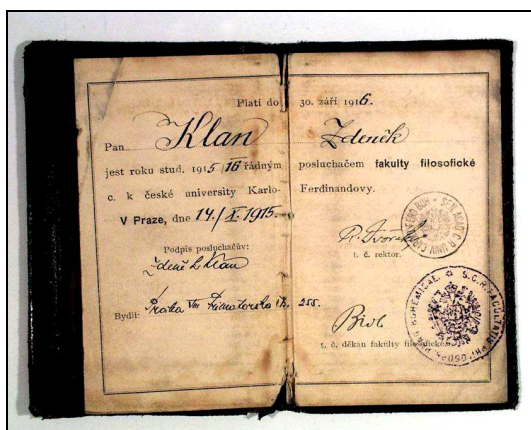 Platí do 30. září 1916.
Pan Klan Zdeněk
jest roku stud. 1915/16 řádným posluchačem fakulty filosofické
c. k české university Karlo-Ferdinandovy.
V Praze, dne 14./X. 1915.
Podpis posluchačův:
Zdeněk Klan
t. č. rektor.
Bydlí: Praha VIII 255.
t. č. děkan fakulty filosofické